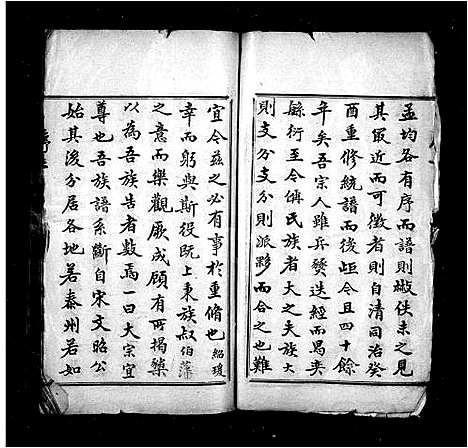 孟均各有序而譜則散佚未之見
其最近而可徵者則自清同治癸
酉重修統譜而後距今且四十餘
年矣吾宗人雖兵燹迭經而昌矣
緜衍至今偁民族者大之夫族大
則支分支分則派夥而合之也難
宜今茲之必有事於重脩也紹瑗
幸而躬與斯役既上東族叔伯藻
之意而樂觀厥成顧有所揭櫫
以為吾族告者數焉一曰大宗宜
尊也吾族譜系斷自宋文昭公
始其後分居各地若泰州若如